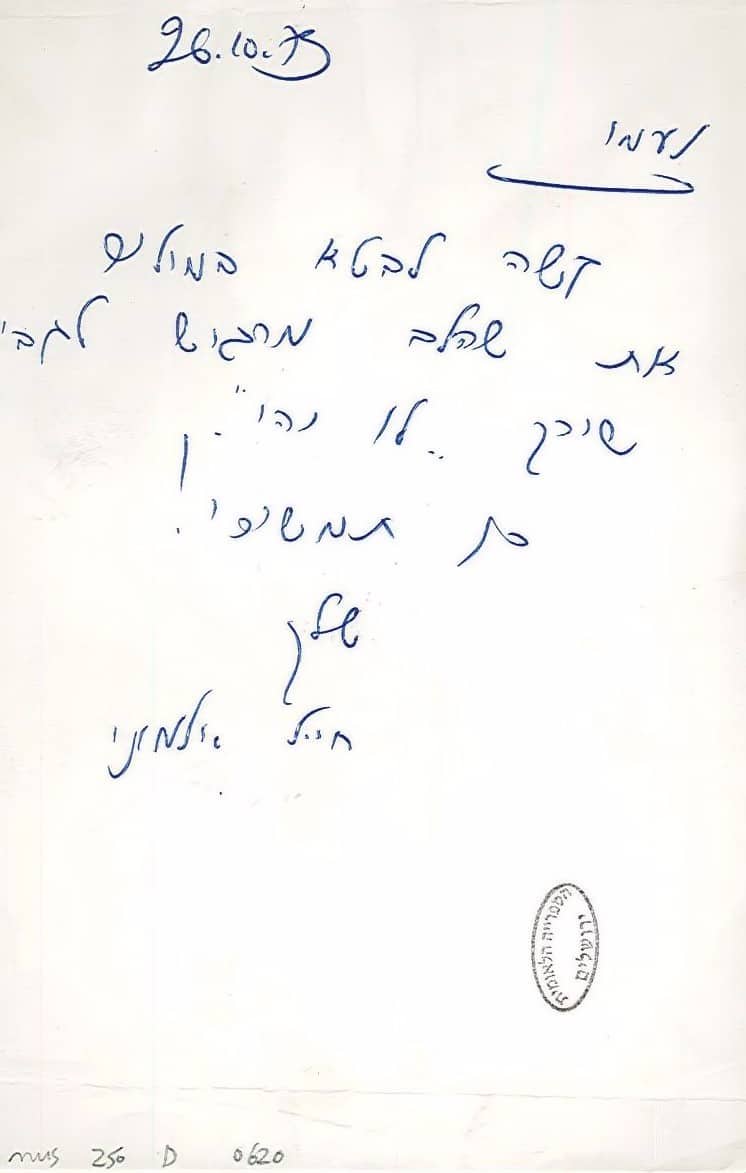 26.10.73
נעמי
קשה לבטא במילים
את שהלב מרגיש לגבי
שירך "לו יהי".
כן תמשיכי!
שלך
חייל אלמוני
הספרייה הלאומית
מוסיקה
mus 250 D 0620